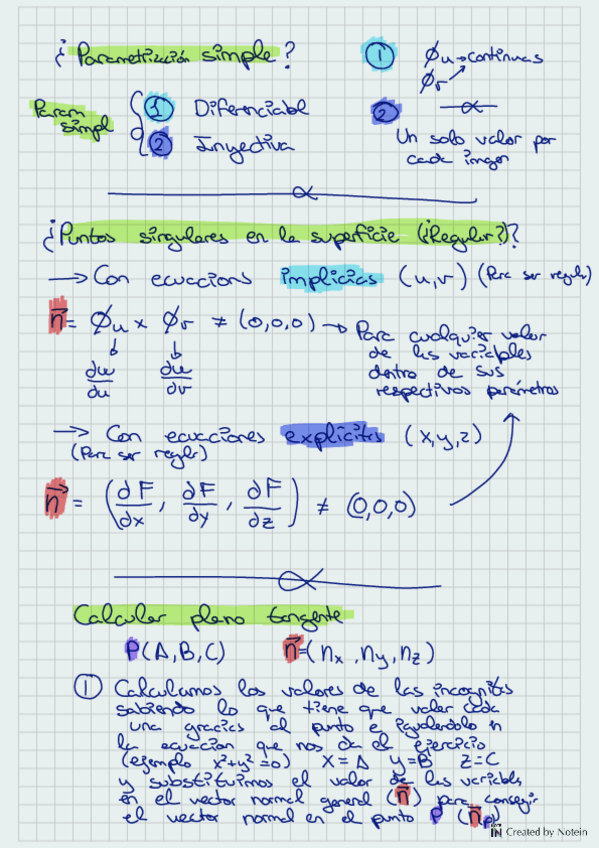 ¿Parametrización simple?
① ϕu → continuas
ϕv
Param simpl { ① Diferenciabl
② Inyectiva
②
Un solo valor por
cada imagen
¿Puntos singulares en la superficie (¿Regular?)?
→ Con ecuacions implicias (u,v) (Para ser regulr)
n⃗ = ϕu × ϕv ≠ (0,0,0) → Para cualquier valor
de las variables
dentro de sus
respectivos parámetros
→ Con ecuaciones explicitas (x,y,z)
(Para ser regulr)
n⃗ = (dF/dx, dF/dy, dF/dz) ≠ (0,0,0)
Calcular plano tangente
P(A,B,C) n⃗=(nx, ny, nz)
① Calculamos los valores de las incognitas
sabiendo lo que tiene que valer cada
una gracias al punto e igualandolo n
la ecuacion que nos da el ejercicio
(ejemplo x²+y²=0) X=A y=B z=C
y substituimos el valor de las variabls
en el vector normal general (n⃗) para conseguir
el vector normal en el punto P (n⃗p)
IN Created by Notein